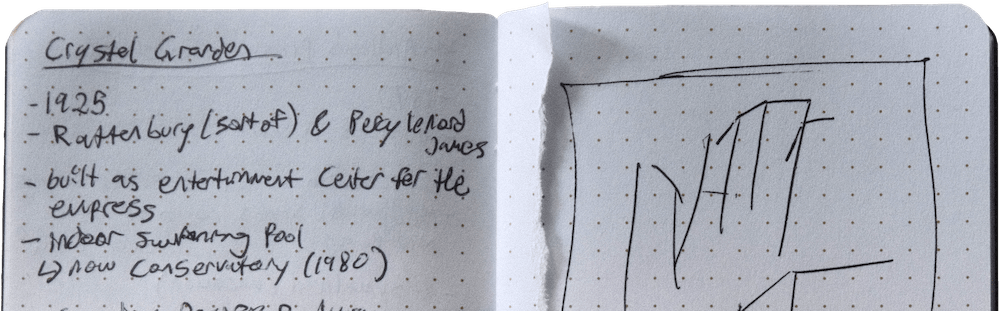 Crystel Grarden
- 1925
- Rattenbury (sort of) & Percy lenard
James
- built as entertainment Center for the
empress
- Indoor Swimming Pool
↳ now Conservatory (1980)